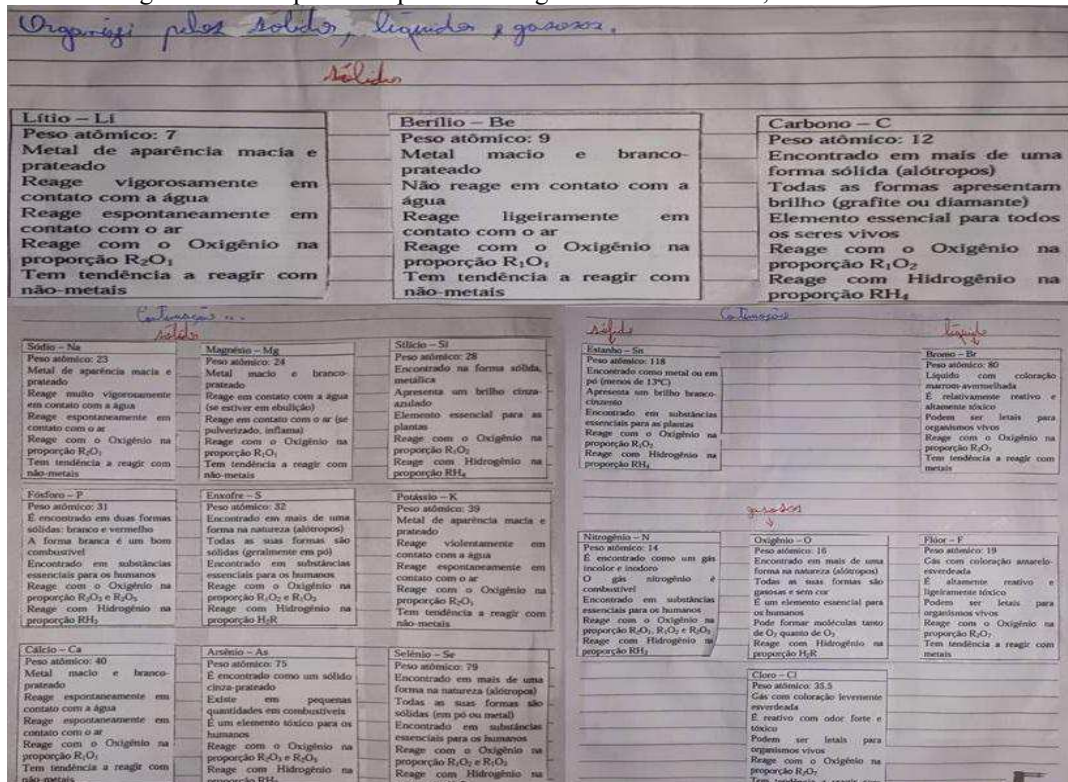 Organizei pelos sólidos, líquidos e gasosos.
sólidos
Lítio – Li
Peso atômico: 7
Metal de aparência macia e
prateado
Reage vigorosamente em
contato com a água
Reage espontaneamente em
contato com o ar
Reage com o Oxigênio na
proporção R₂O₁
Tem tendência a reagir com
não-metais
Berílio – Be
Peso atômico: 9
Metal macio e branco-
prateado
Não reage em contato com a
água
Reage ligeiramente em
contato com o ar
Reage com o Oxigênio na
proporção R₁O₁
Tem tendência a reagir com
não-metais
Carbono – C
Peso atômico: 12
Encontrado em mais de uma
forma sólida (alótropos)
Todas as formas apresentam
brilho (grafite ou diamante)
Elemento essencial para todos
os seres vivos
Reage com o Oxigênio na
proporção R₁O₂
Reage com Hidrogênio na
proporção RH₄
sólido
Sódio – Na
Peso atômico: 23
Metal de aparência macia e
prateado
Reage muito vigorosamente
em contato com a água
Reage espontaneamente em
contato com o ar
Reage com o Oxigênio na
proporção R₂O₁
Tem tendência a reagir com
não-metais
Magnésio – Mg
Peso atômico: 24
Metal macio e branco-
prateado
Reage em contato com a água
(se estiver em ebulição)
Reage em contato com o ar (se
pulverizado, inflama)
Reage com o Oxigênio na
proporção R₁O₁
Tem tendência a reagir com
não-metais
Silício – Si
Peso atômico: 28
Encontrado na forma sólida,
metálica
Apresenta um brilho cinza-
azulado
Elemento essencial para as
plantas
Reage com o Oxigênio na
proporção R₁O₂
Reage com Hidrogênio na
proporção RH₄
Fósforo – P
Peso atômico: 31
É encontrado em duas formas
sólidas: branco e vermelho
A forma branca é um bom
combustível
Encontrado em substâncias
essenciais para os humanos
Reage com o Oxigênio na
proporção R₂O₃ e R₂O₅
Reage com Hidrogênio na
proporção RH₃
Enxofre – S
Peso atômico: 32
Encontrado em mais de uma
forma na natureza (alótropos)
Todas as suas formas são
sólidas (geralmente em pó)
Encontrado em substâncias
essenciais para os humanos
Reage com o Oxigênio na
proporção R₁O₂ e R₁O₃
Reage com Hidrogênio na
proporção H₂R
Potássio – K
Peso atômico: 39
Metal de aparência macia e
prateado
Reage violentamente em
contato com a água
Reage espontaneamente em
contato com o ar
Reage com o Oxigênio na
proporção R₂O₁
Tem tendência a reagir com
não-metais
Cálcio – Ca
Peso atômico: 40
Metal macio e branco-
prateado
Reage espontaneamente em
contato com a água
Reage espontaneamente em
contato com o ar
Reage com o Oxigênio na
proporção R₁O₁
Tem tendência a reagir com
não-metais
Arsênio – As
Peso atômico: 75
É encontrado como um sólido
cinza-prateado
Existe em pequenas
quantidades em combustíveis
É um elemento tóxico para os
humanos
Reage com o Oxigênio na
proporção R₂O₃ e R₂O₅
Reage com Hidrogênio na
proporção RH₃
Selênio – Se
Peso atômico: 79
Encontrado em mais de uma
forma na natureza (alótropos)
Todas as suas formas são
sólidas (em pó ou metal)
Encontrado em substâncias
essenciais para os humanos
Reage com o Oxigênio na
proporção R₁O₂ e R₁O₃
Reage com Hidrogênio na
sólido
Estanho – Sn
Peso atômico: 118
Encontrado como metal ou em
pó (menos de 13ºC)
Apresenta um brilho branco-
cinzento
Encontrado em substâncias
essenciais para as plantas
Reage com o Oxigênio na
proporção R₁O₂
Reage com Hidrogênio na
proporção RH₄
líquido
Bromo – Br
Peso atômico: 80
Líquido com coloração
marrom-avermelhada
É relativamente reativo e
altamente tóxico
Podem ser letais para
organismos vivos
Reage com o Oxigênio na
proporção R₂O₇
Tem tendência a reagir com
metais
gasosos
Nitrogênio – N
Peso atômico: 14
É encontrado como um gás
incolor e inodoro
O gás nitrogênio é
combustível
Encontrado em substâncias
essenciais para os humanos
Reage com o Oxigênio na
proporção R₂O₁, R₁O₂ e R₂O₅
Reage com Hidrogênio na
proporção RH₃
Oxigênio – O
Peso atômico: 16
Encontrado em mais de uma
forma na natureza (alótropos)
Todas as suas formas são
gasosas e sem cor
É um elemento essencial para
os humanos
Pode formar moléculas tanto
de O₂ quanto de O₃
Reage com Hidrogênio na
proporção H₂R
Flúor – F
Peso atômico: 19
Gás com coloração amarelo-
esverdeada
É altamente reativo e
ligeiramente tóxico
Podem ser letais para
organismos vivos
Reage com o Oxigênio na
proporção R₂O₇
Tem tendência a reagir com
metais
Cloro – Cl
Peso atômico: 35,5
Gás com coloração levemente
esverdeada
É reativo com odor forte e
tóxico
Podem ser letais para
organismos vivos
Reage com o Oxigênio na
proporção R₂O₇